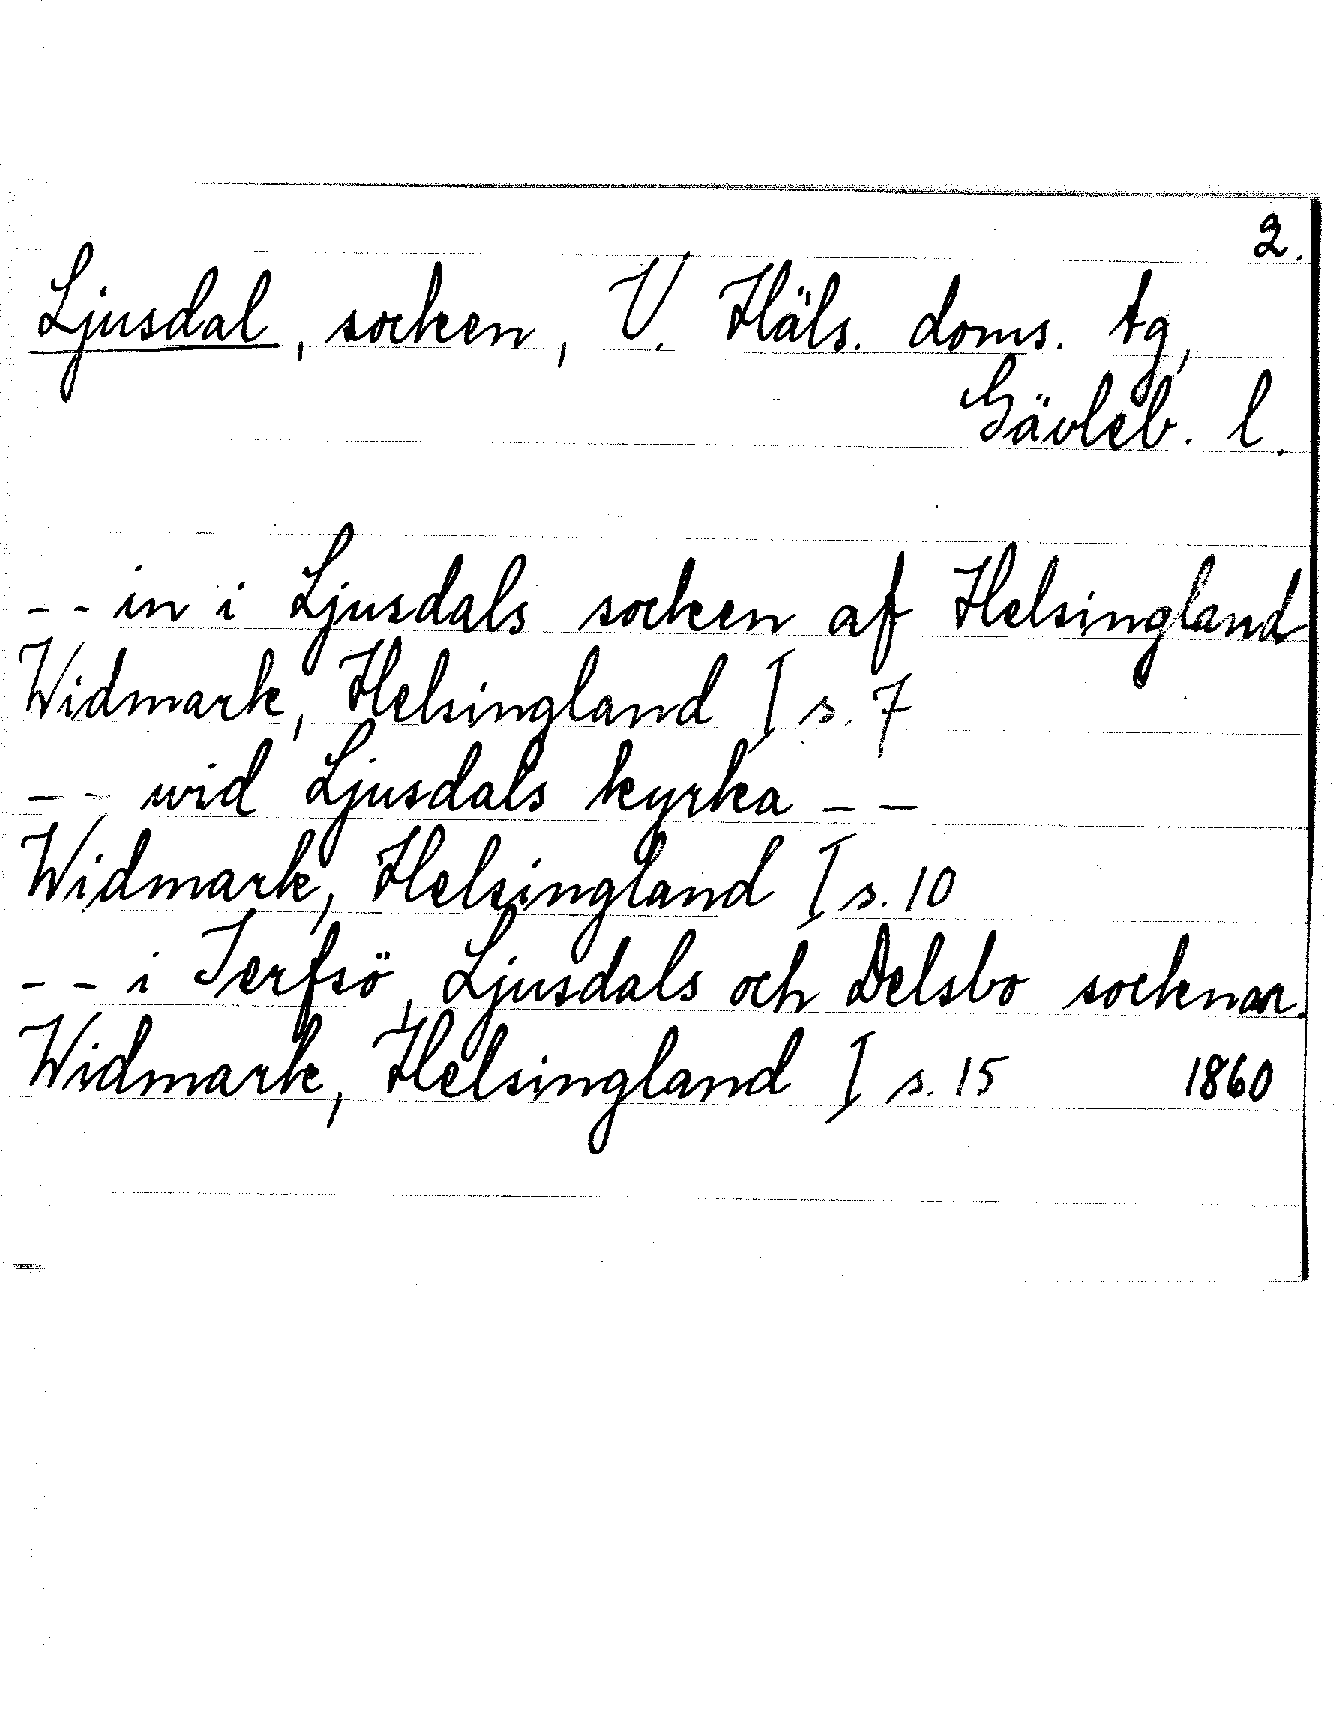 2.
Ljusdal, socken, V. Häls. doms. tg,
Gävleb. l.
-- in i Ljusdals socken af Helsingland
Widmark, Helsingland I s. 7
-- wid Ljusdals kyrka --
Widmark, Helsingland I s. 10
-- i Jerfsö, Ljusdals och Delsbo socknar.
Widmark, Helsingland I s. 15 1860